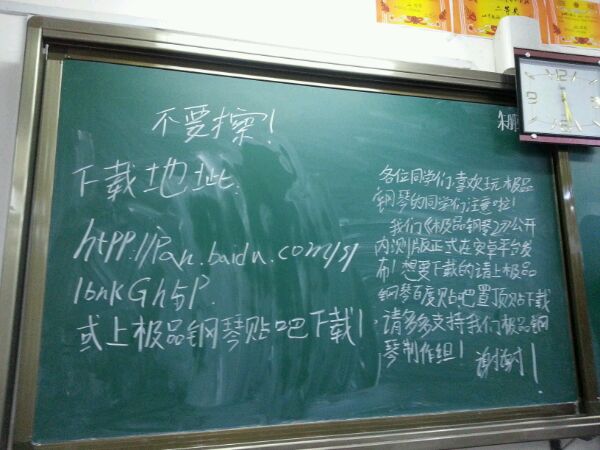 二等奖
不要擦!
下载地址
http://Pan.baidu.com/s/
1bnkGh5P.
或上极品钢琴贴吧下载!
朱
各位同学们喜欢玩极品
钢琴的同学们注意啦!
我们《极品钢琴2》公开
内测版正式在安卓平台发
布!想要下载的请上极品
钢琴百度贴吧置顶贴下载
请多多支持我们极品钢
琴制作组!谢谢!
12